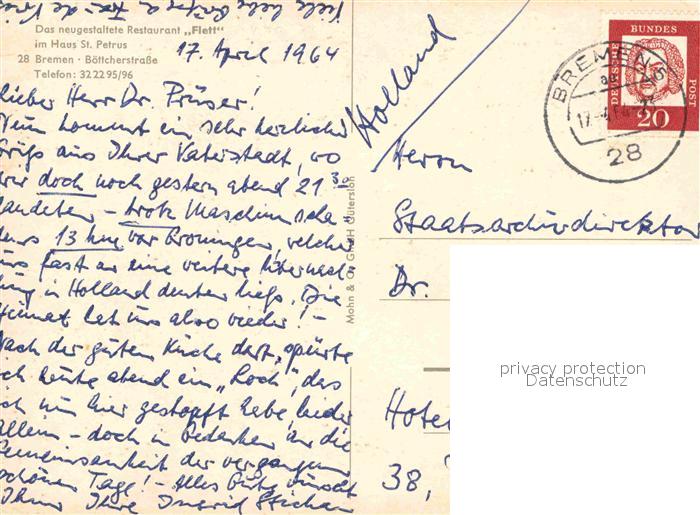 Viele liebe Grüße a
Das neugestaltete Restaurant „Flett"
im Haus St. Petrus
28 Bremen · Böttcherstraße
Telefon: 32 22 95/96
17. April 1964
Lieber Herr Dr. Prüser!
Nun kommt ein sehr herzlicher
Gruß aus Ihrer Vaterstadt, wo
wir doch noch gestern abend 21 30
landeten – trotz Maschinenscha-
dens 13 km vor Groningen, welcher
uns fast an eine weitere Übernach-
tung in Holland denken ließ. Die
Heimat hat uns also wieder! –
Nach der guten Küche dort, spürte
ich heute abend ein „Loch", das
ich nun hier gestopft habe, leider
allein – doch in Gedanken an die
Gemeinsamkeit der vergangenen
schönen Tage! – Alles Gute wünscht
Ihnen Ihre Ingrid
Mohn & Co GmbH Gütersloh
Holland
DEUTSCHE BUNDES POST
20
BREMEN 5
28
Herrn
Staatsarchivdirektor
Dr.
Hote
38,
privacy protection
Datenschutz